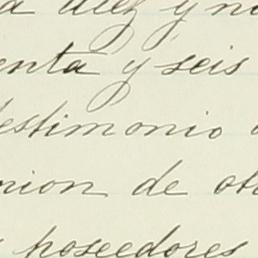 a diez y nu
enta y seis
testimonio
nion de ot
poseedores